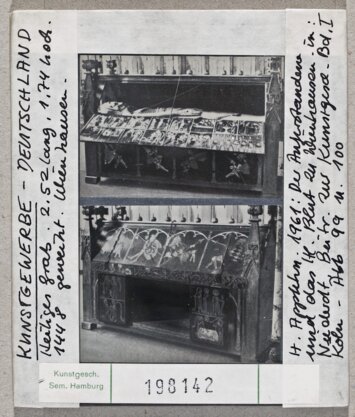 KUNSTGEWERBE - DEUTSCHLAND
Heiliges Grab. 2.52 lang, 1.74 hoch.
1448 geweiht. Wienhausen.
H. Appuhn, 1961: Der Auferstandene
und das Hl. Blut zu Wienhausen in:
Niederdt. Beitr. zur Kunstgesch. Bd. I
Köln - Abb 99 u. 100
Kunstgesch.
Sem. Hamburg
198142